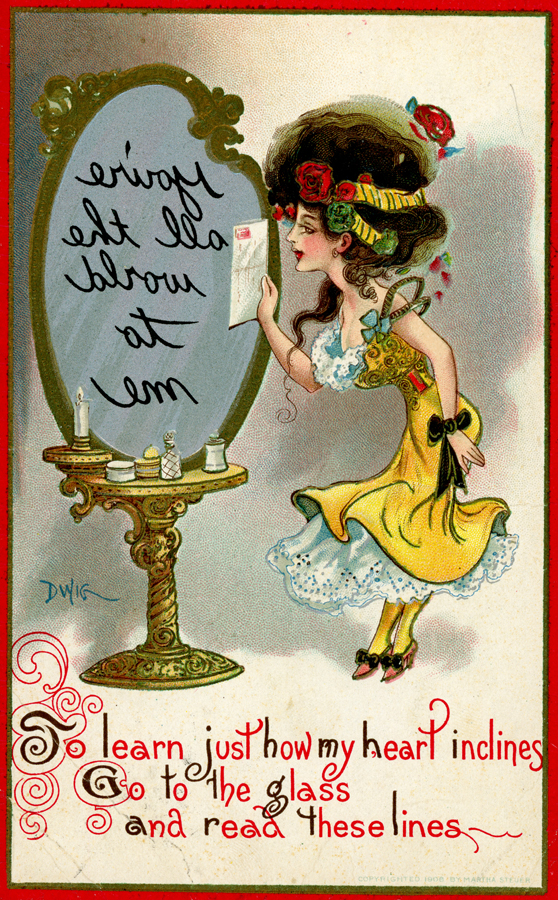 You're
all the
world
to
me
DWIG
To learn just how my heart inclines
Go to the glass
and read these lines
COPYRIGHTED BY MARTHA